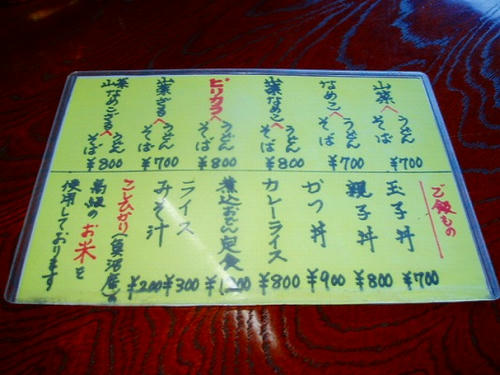 山菜へうどん そば ¥700
なめこへうどん そば ¥700
山菜なめこへうどん そば ¥800
ピリカラへうどん そば ¥800
山菜ざるへうどん そば ¥700
山菜なめこざるへうどん そば ¥800
ご飯もの
玉子丼 ¥700
親子丼 ¥800
かつ丼 ¥900
カレーライス ¥800
煮込おでん定食
ライス ¥300
みそ汁 ¥200
こしひかり(魚沼産)の
お米を
使用しております